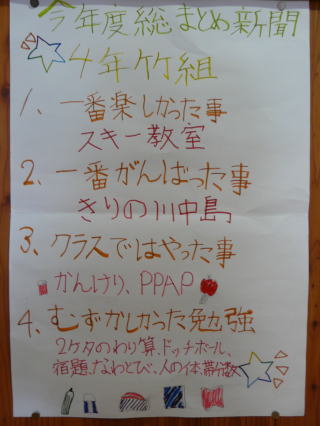 今年度総まとめ新聞
4年竹組
1、一番楽しかった事
スキー教室
2、一番がんばった事
きりの川中島
3、クラスではやった事
かんけり、PPAP
4、むずかしかった勉強
2ケタのわり算、ドッチボール、
宿題、なわとび、人の体、帯分数